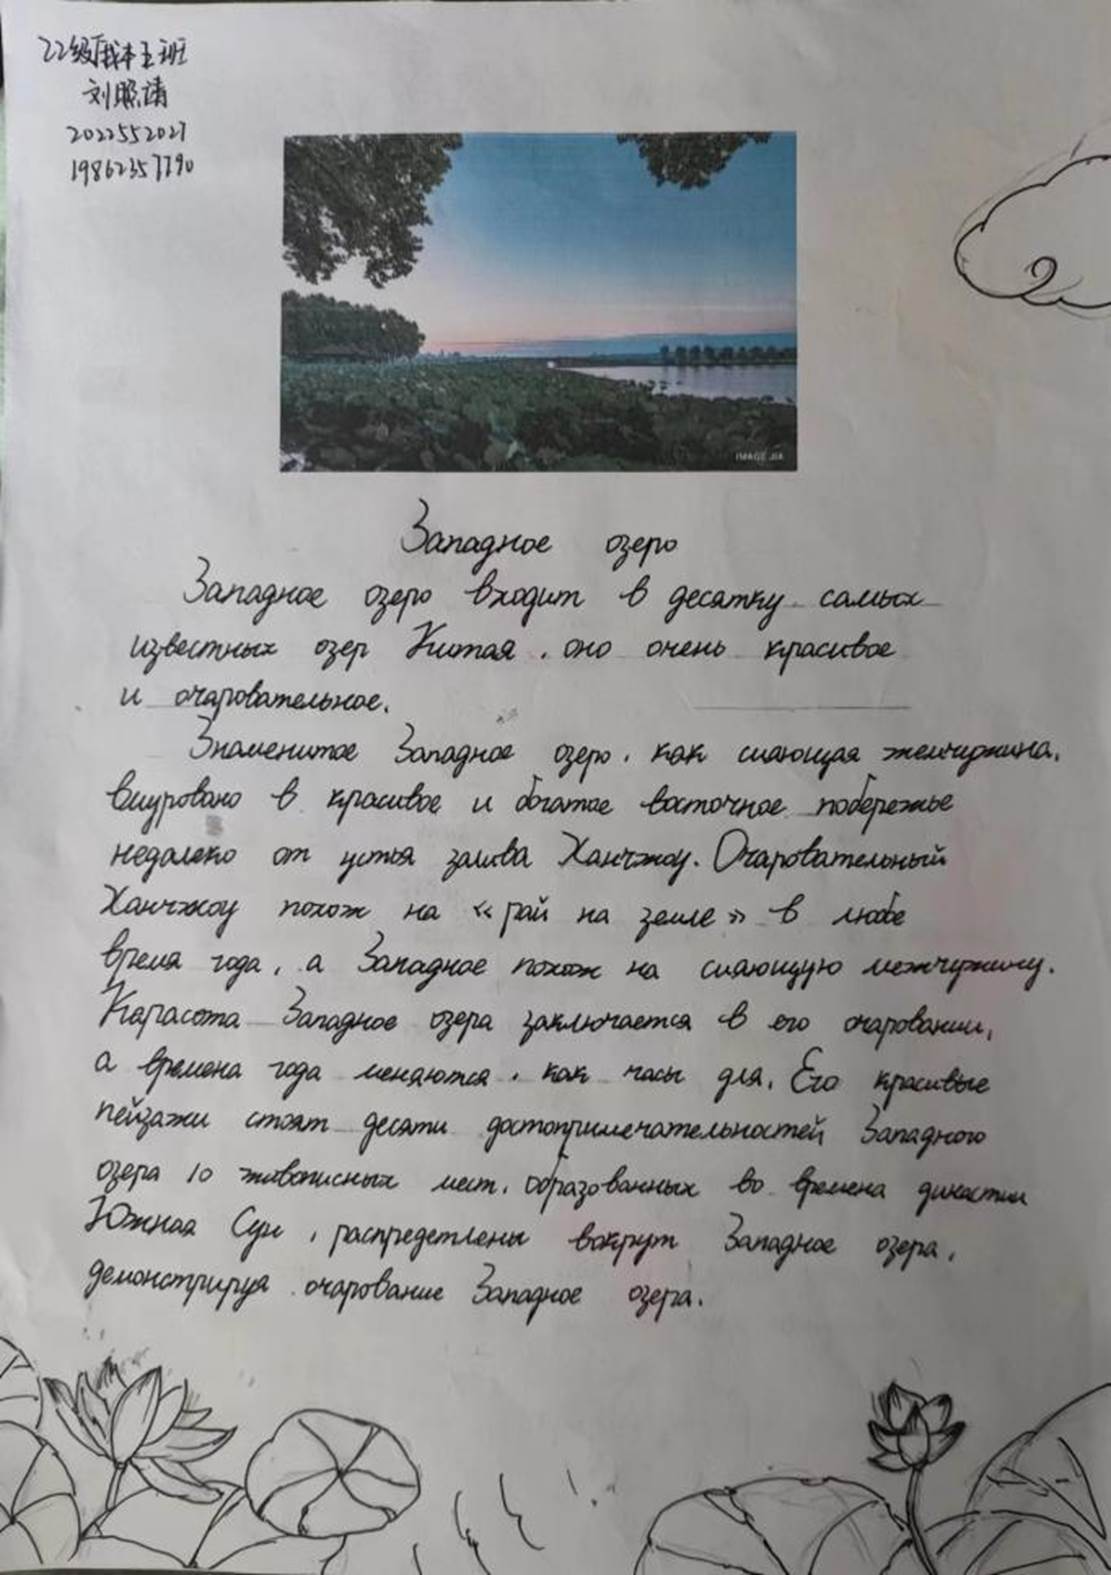 22级俄本五班
刘照靖
2022552027
19862357790
IMAGE JIA
Западное озеро
Западное озеро входит в десятку самых
известных озер Китая, оно очень красивое
и очаровательное.
Знаменитое Западное озеро, как сияющая жемчужина,
вмуровано в красивое и богатое восточное побережье
недалеко от устья залива Ханчжоу. Очаровательный
Ханчжоу похож на «рай на земле» в любе
время года, а Западное похож на сияющую межчужину.
Карасота Западное озера заключается в его очаровании,
а времена года меняются, как часы для. Его красивые
пейзажи стоят десяти достопримечательностей Западного
озера 10 живописных мест, образованных во времена династии
Южная Сун, распредетлены вокрут Западное озера,
демонстрируя очарование Западное озера.